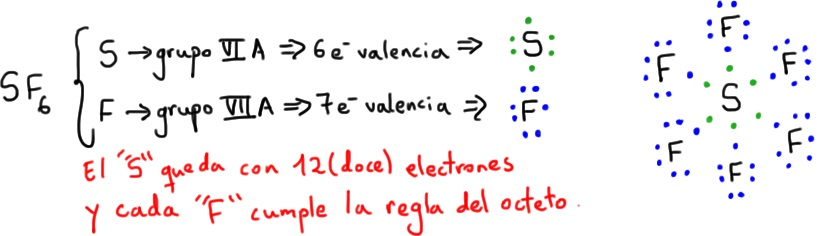 SF₆ { S → grupo VI A ⇒ 6 e⁻ valencia ⇒ S
F → grupo VII A ⇒ 7 e⁻ valencia ⇒ F
El "S" queda con 12 (doce) electrones
y cada "F" cumple la regla del octeto.
F
F F
S
F F
F